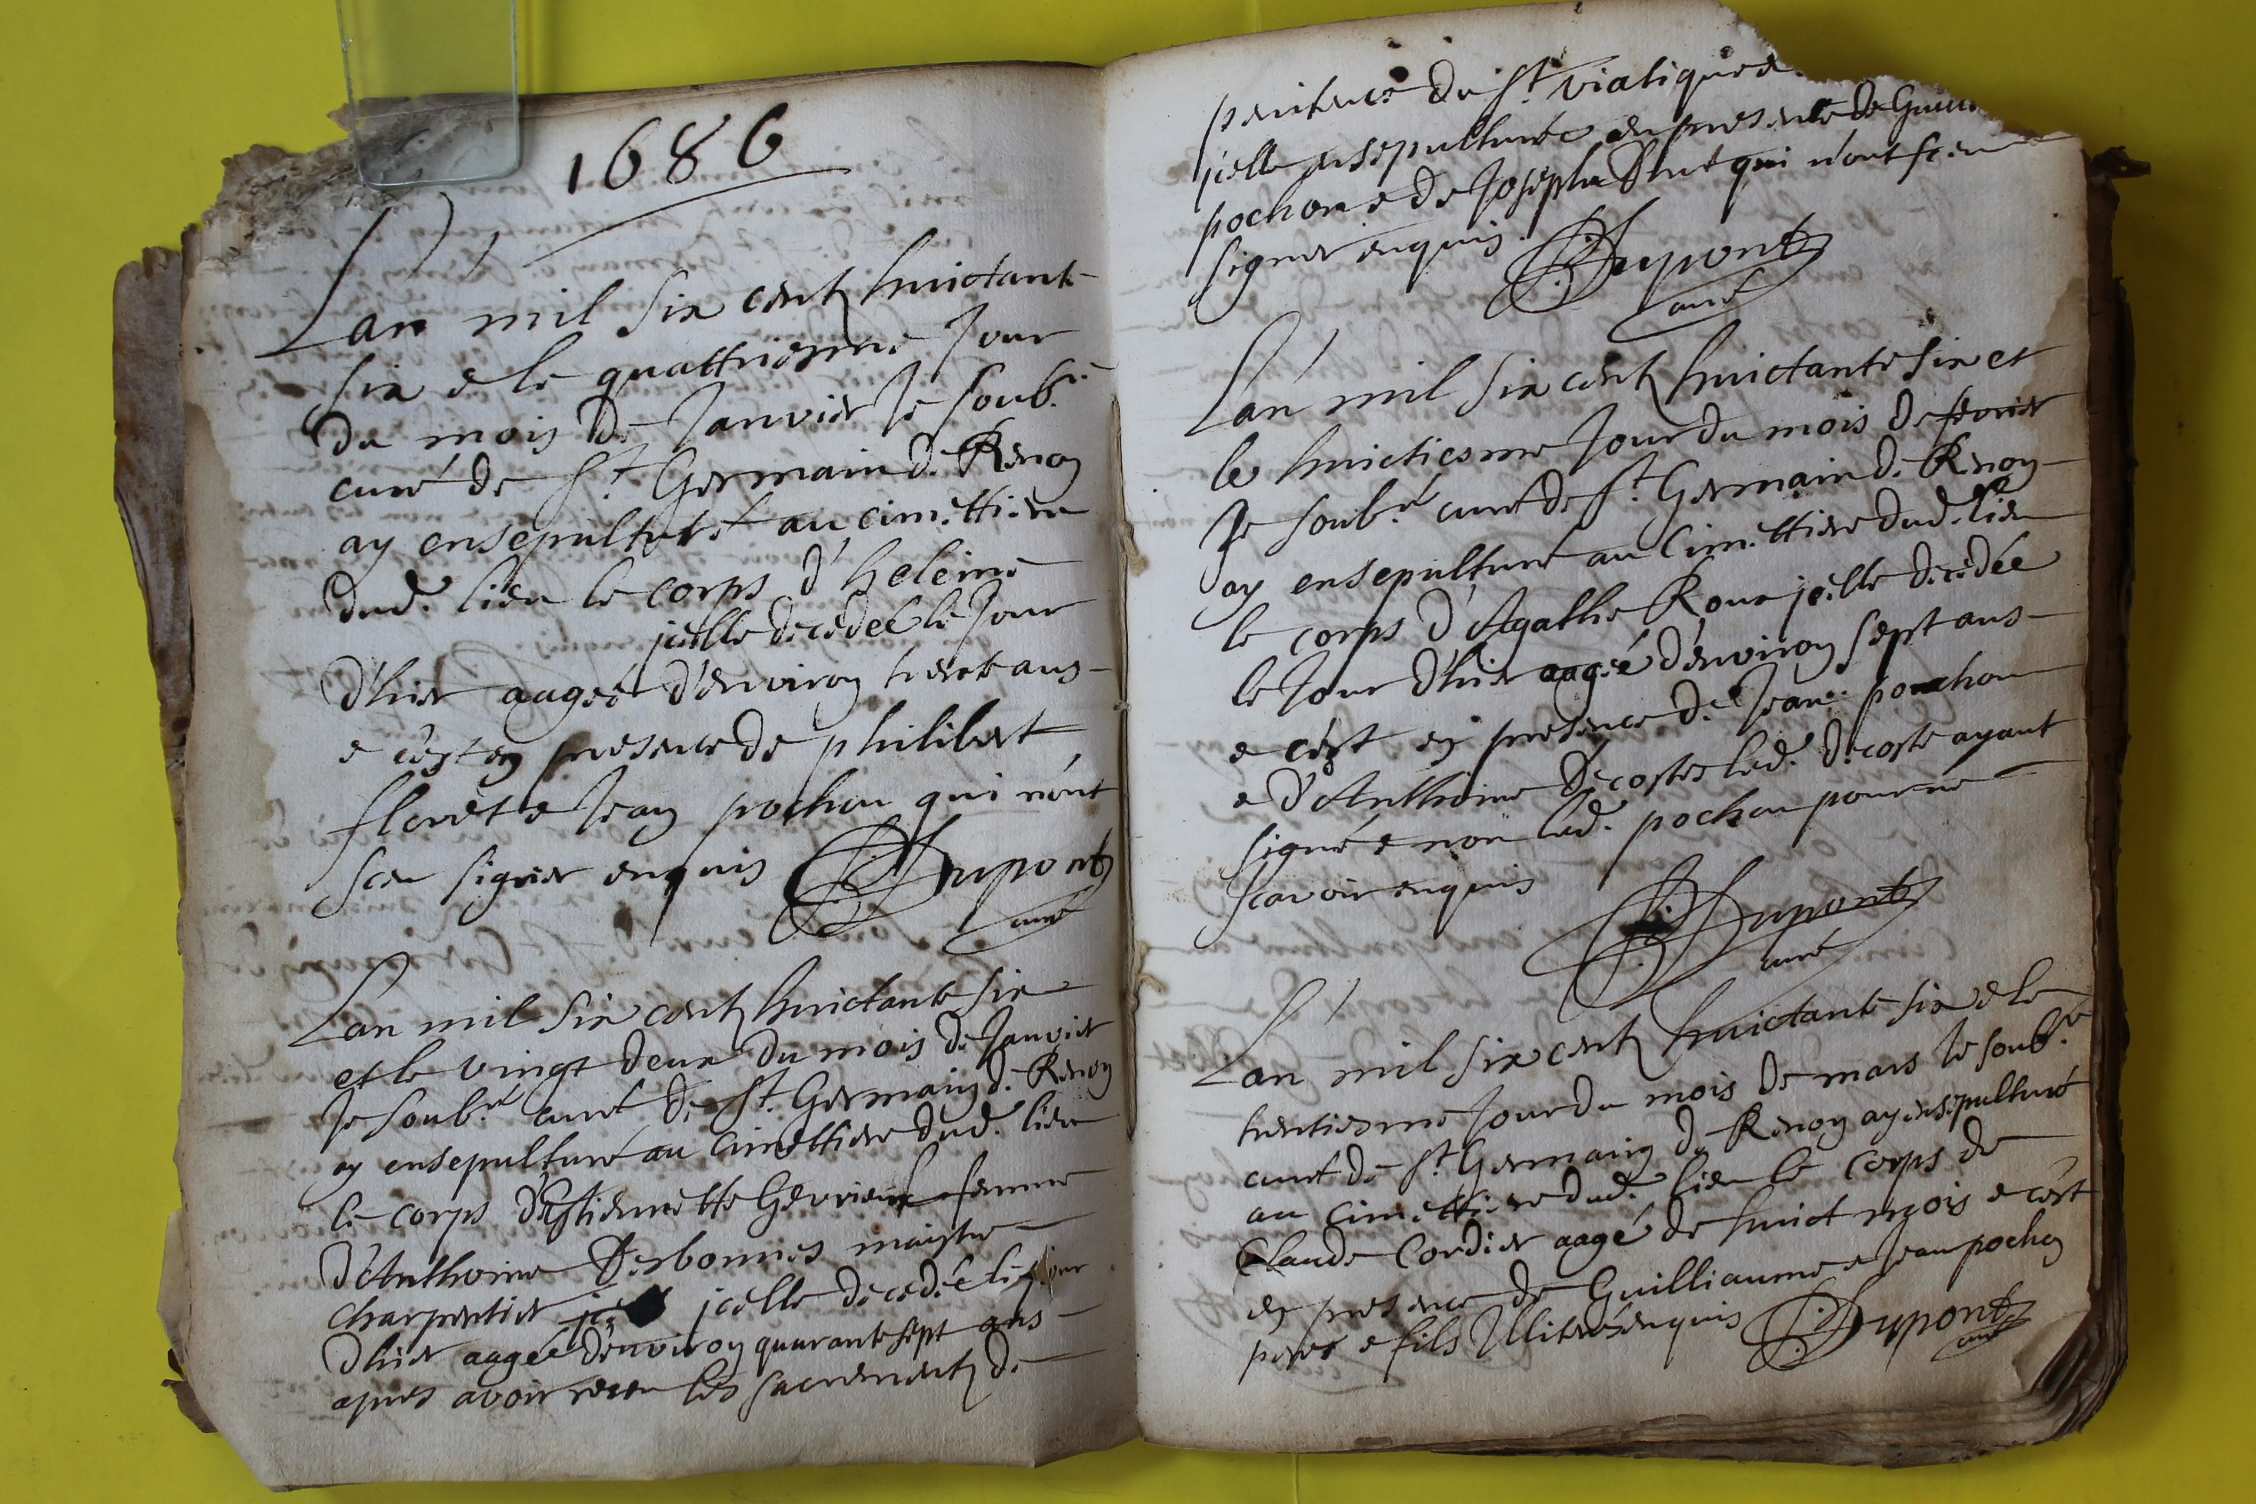 1686
L'an mil six centz huictante
six e le quattriesme Jour
du mois de Janvier Je soub.né
curé de St Germain de Renon
ay ensepulturé au cimettiere
dud. lieu le corps d'heleine
jcelle decedée le Jour
d'hier aagée d'environ trente ans
e c'est en presence de philibert
floret e Jean pochon qui n'ont
sceu signer enquis Dupont
curé
L'an mil six centz huictante six
et le vingt deux du mois de Janvier
Je soub.né curé de St Germain de Renon
ay ensepulturé au cimettiere dud. lieu
le corps d'Estiennette Gevrieux femme
d'Anthoine Desbonnes maistre
charpentier jcelle decedée le jour
d'hier aagée d'environ quarante sept ans
apres avoir receu les sacrementz de
penitence du St viatique e
jcelle ensepulturée en presence de
pochon e de Joseph qui n'ont sceu
signer enquis. Dupont
curé
L'an mil six centz huictante six et
le huictiesme Jour du mois de fevrier
Je soub.né curé de St Germain de Renon
ay ensepulturé au Cimettiere dud. lieu
le corps d'Agathe Roux jcelle decedée
le Jour d'hier aagée d'environ sept ans
e c'est en presence de Jean pochon
e d'Anthoine Decostes led. Decoste ayant
signé e non led. pochon pour ne
scavoir enquis
Dupont
curé
L'an mil six centz huictante six e le
trentiesme Jour du mois de mars Je soub.né
curé de St Germain de Renon ay ensepulturé
au Cimettiere dud. lieu le Corps de
Claude Cordier aagé de huict mois e c'est
en presence de Guilliaume e Jean pochon
peres e fils Illiterés enquis Dupont
curé